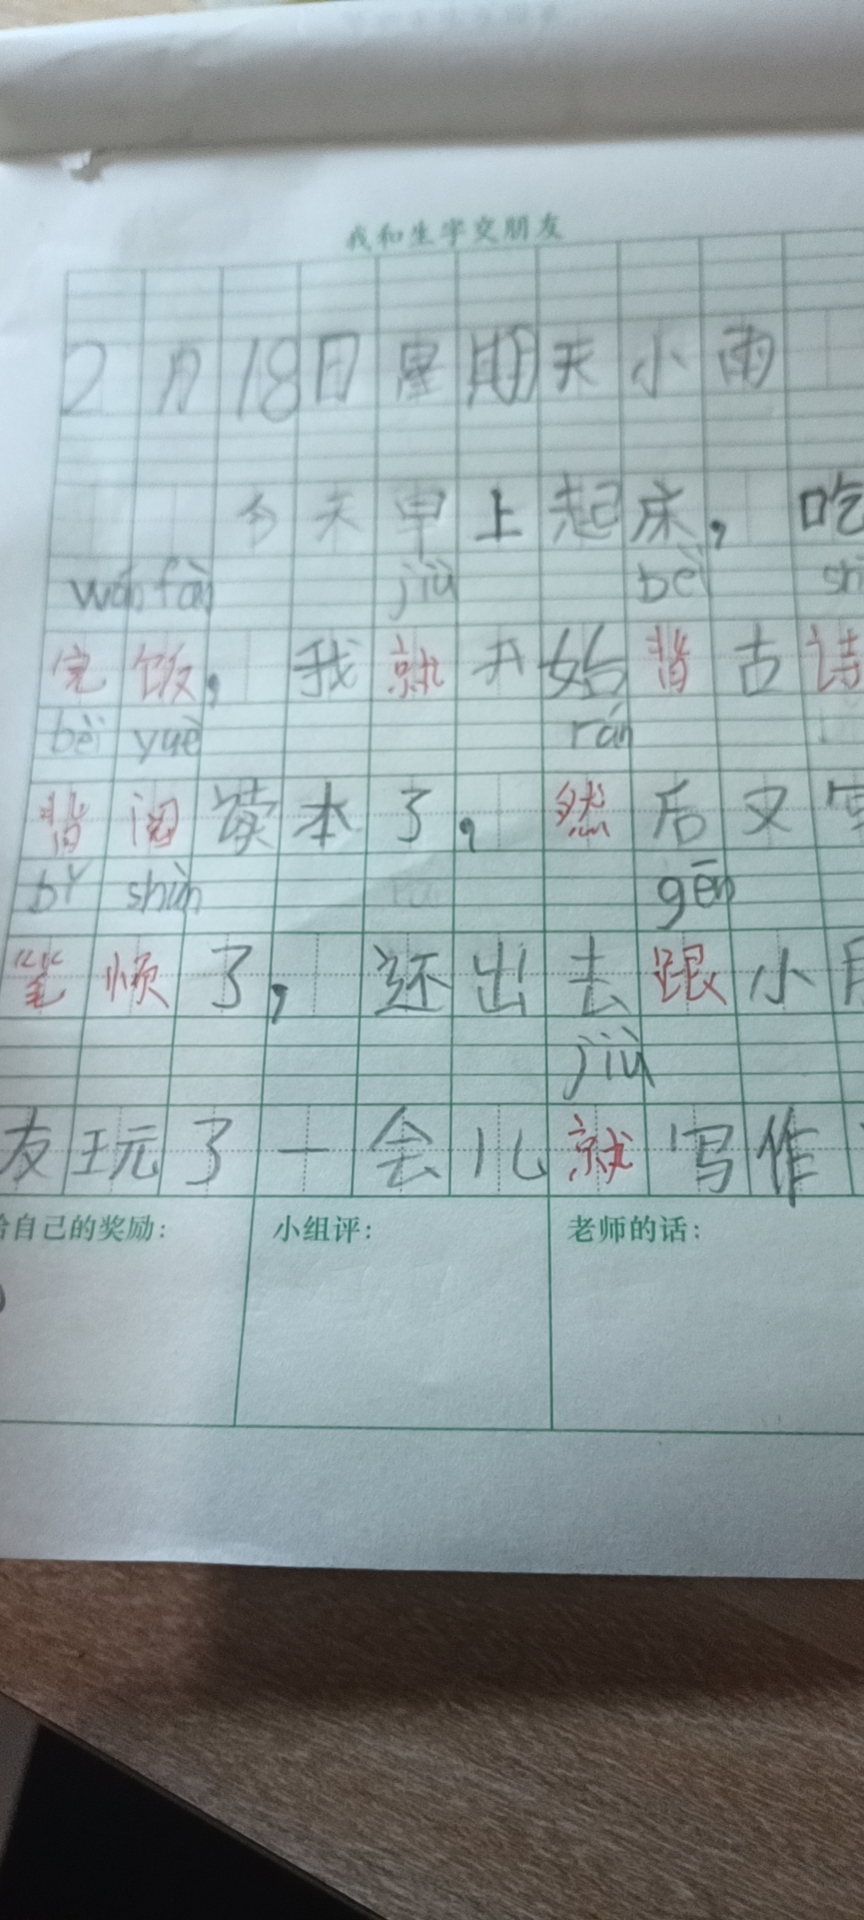 我和生字交朋友
2月18日星期天小雨
今天早上起床，吃
wán fàn jiù bèi shī
完饭，我就开始背古诗
bèi yuè rán
背阅读本了，然后又写
bǐ shùn gēn
笔顺了，还出去跟小朋
jiù
友玩了一会儿就写作
给自己的奖励： 小组评： 老师的话：